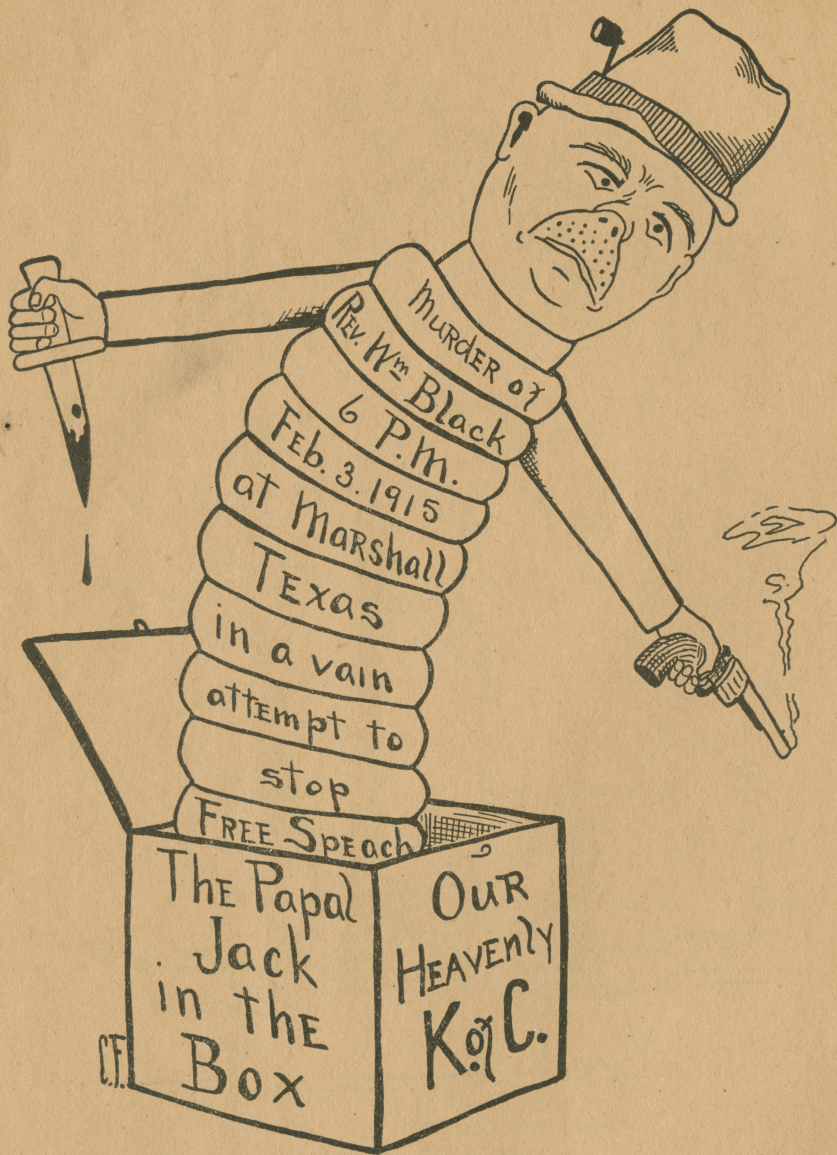 Murder of
Rev. Wm Black
6 P.M.
Feb. 3. 1915
at Marshall
Texas
in a vain
attempt to
stop
Free Speach
The Papal
Jack
in the
Box
Our
Heavenly
K of C.
C.F.